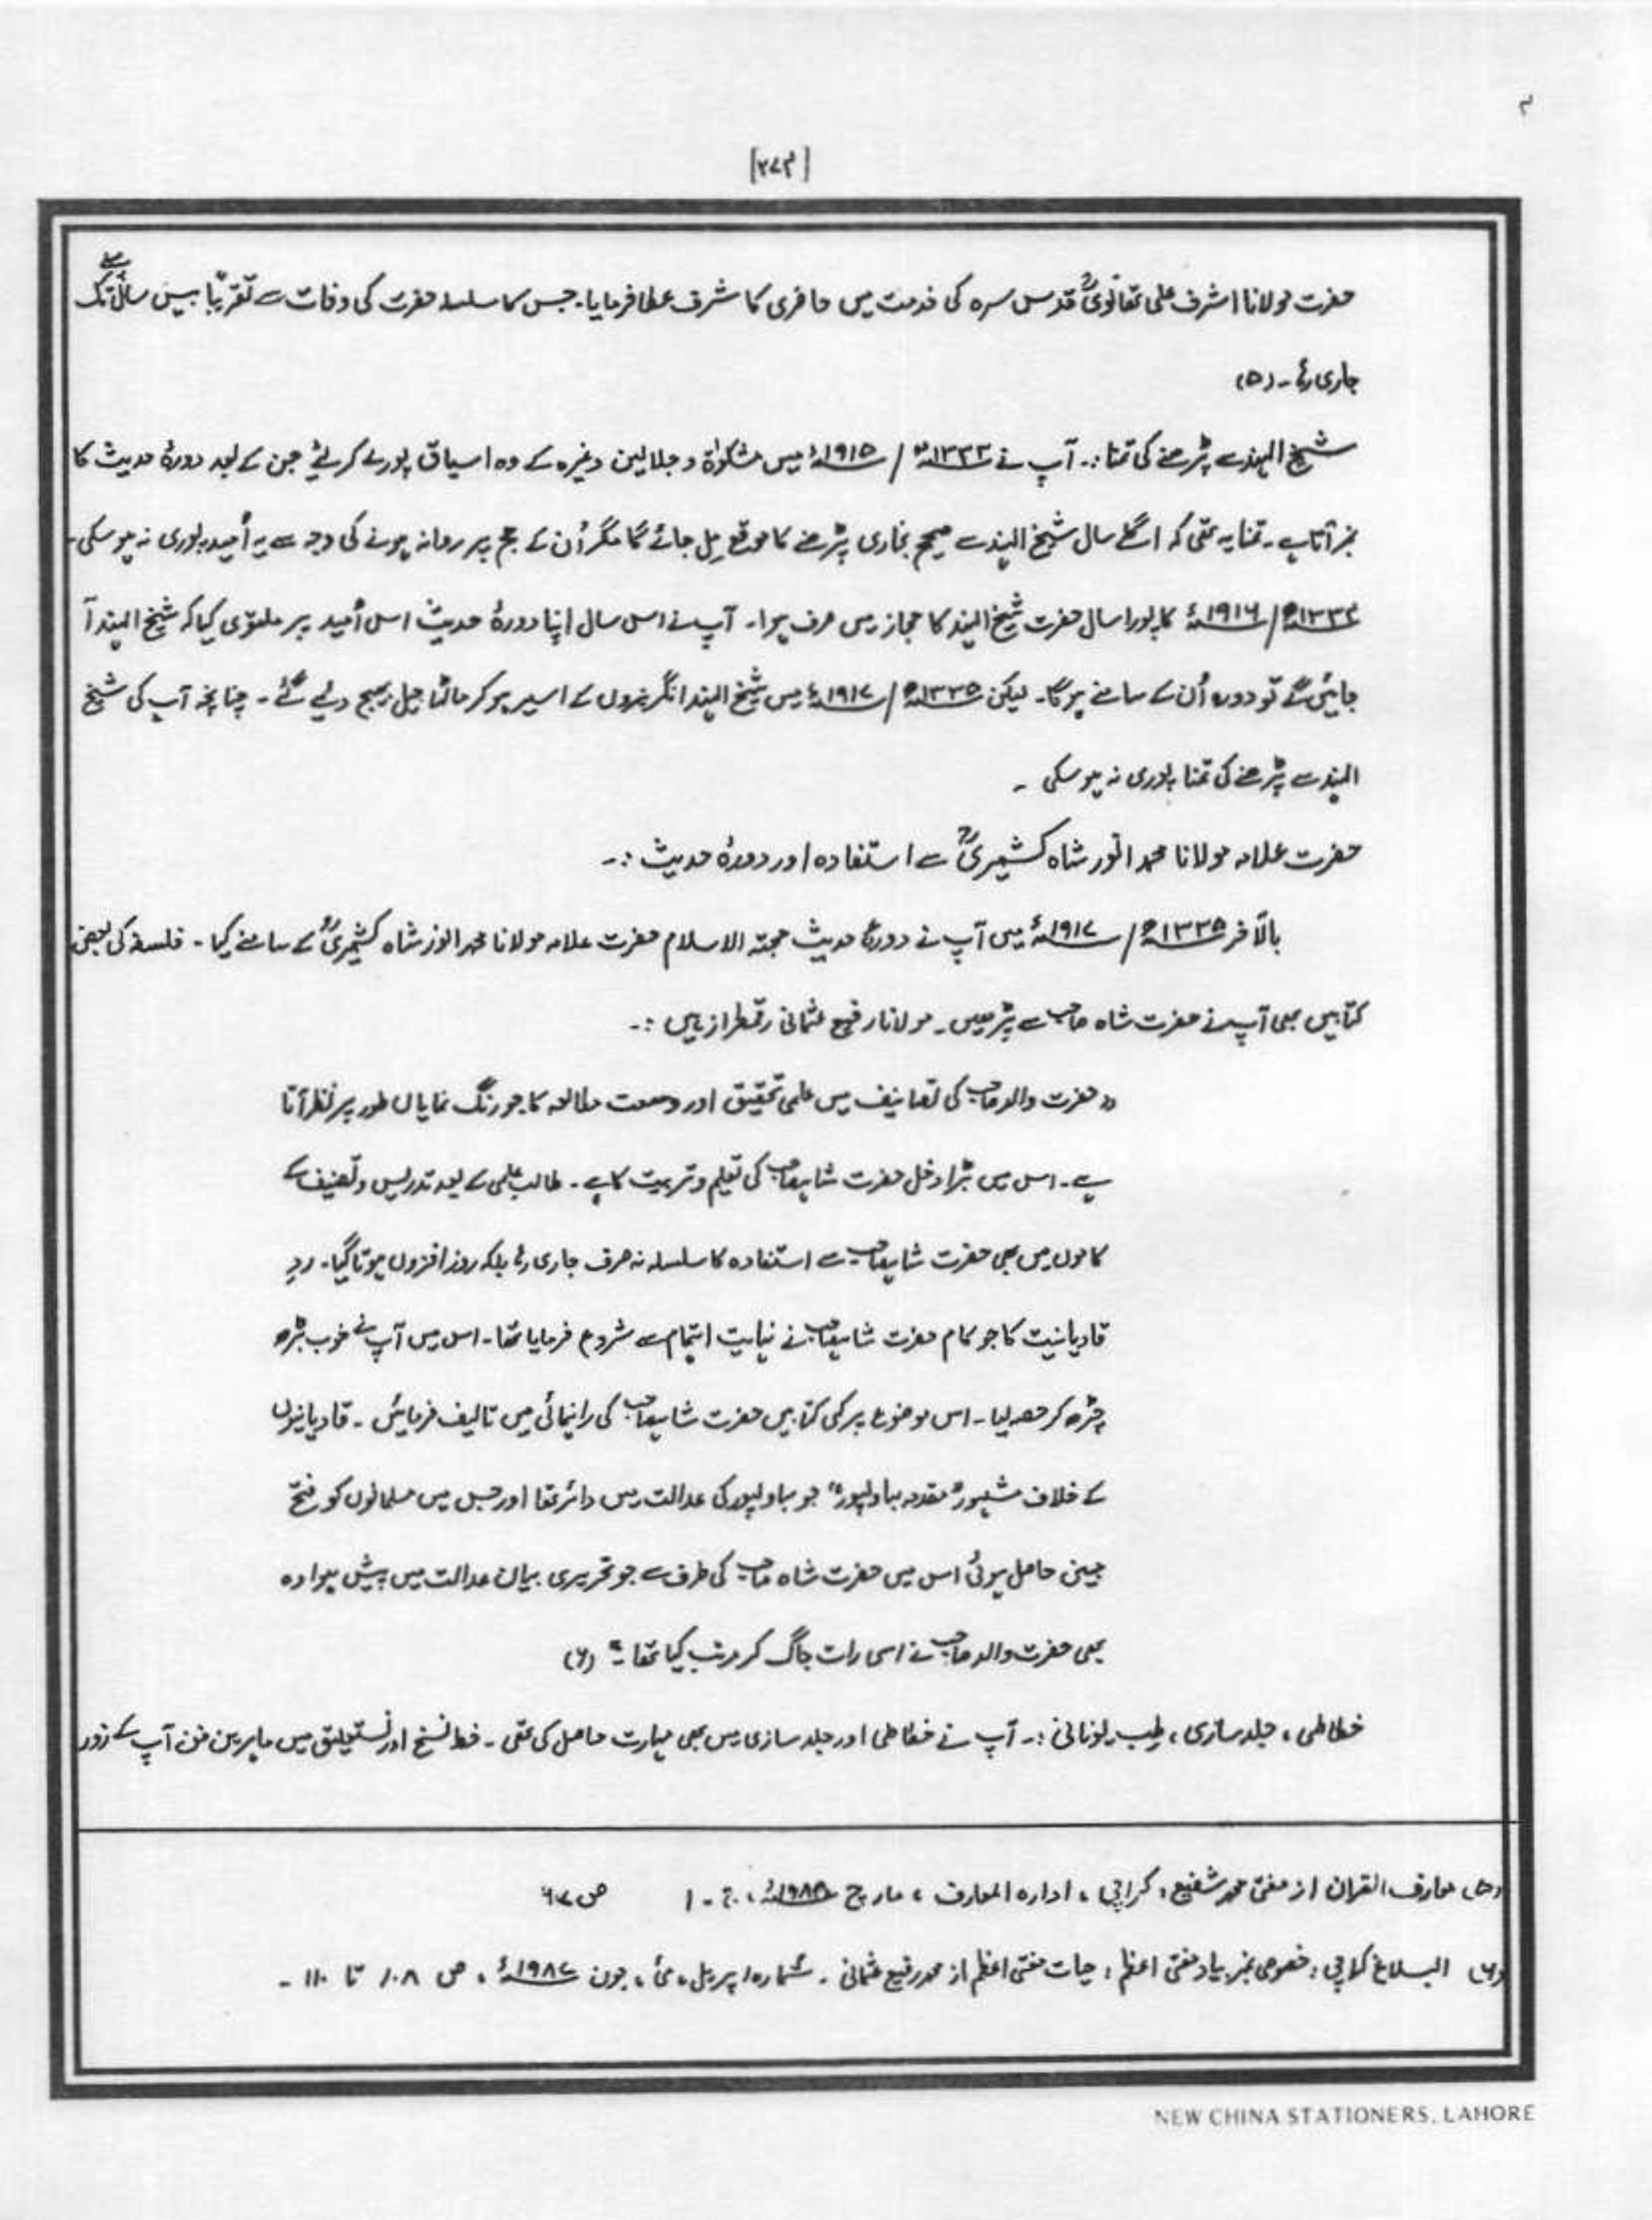 [۲۷۴]
حضرت مولانا اشرف علی تھانویؒ قدس سرہ کی خدمت میں حاضری کا شرف عطا فرمایا۔ جس کا سلسلہ حضرت کی وفات سے تقریباً بیس سال پہلے تک
جاری رہا۔ (۵)
شیخ الہند سے پڑھنے کی تمنا :۔ آپ نے ۱۳۳۳ھ / ۱۹۱۵ء میں مشکوٰة و جلالین وغیرہ کے وہ اسباق پورے کر لئے جن کے بعد دورۂ حدیث کا
نمبر آتا ہے۔ تمنا یہ تھی کہ اگلے سال شیخ الہند سے صحیح بخاری پڑھنے کا موقع مل جائے گا مگر اُن کے حج پر روانہ ہونے کی وجہ سے یہ اُمید پوری نہ ہو سکی۔
۱۳۳۴ھ / ۱۹۱۶ء کا پورا سال حضرت شیخ الہند کا حجاز میں صرف ہوا۔ آپ نے اس سال اپنا دورۂ حدیث اس اُمید پر ملتوی کیا کہ شیخ الہند آ
جائیں گے تو دورہ اُن کے سامنے ہو گا۔ لیکن ۱۳۳۵ھ / ۱۹۱۷ء میں شیخ الہند انگریزوں کے اسیر ہو کر مالٹا جیل بھیج دئیے گئے۔ چنانچہ آپ کی شیخ
الہند سے پڑھنے کی تمنا پوری نہ ہو سکی ۔
حضرت علامہ مولانا محمد انور شاہ کشمیریؒ سے استفادہ اور دورۂ حدیث :۔
بالآخر ۱۳۳۵ھ / ۱۹۱۷ء میں آپ نے دورۂ حدیث حجتہ الاسلام حضرت علامہ مولانا محمد انور شاہ کشمیریؒ کے سامنے کیا ۔ فلسفہ کی بعض
کتابیں بھی آپ نے حضرت شاہ صاحب سے پڑھیں۔ مولانا رفیع عثمانی رقمطراز ہیں :۔
"حضرت والد صاحب کی تصانیف میں علمی تحقیق اور وسعت مطالعہ کا جو رنگ نمایاں طور پر نظر آتا
ہے۔ اس میں بڑا دخل حضرت شاہصاحب کی تعلیم و تربیت کا ہے۔ طالب علمی کے بعد تدریس و تصنیف کے
کاموں میں بھی حضرت شاہصاحب سے استفادہ کا سلسلہ نہ صرف جاری رہا بلکہ روز افزوں ہوتا گیا۔ ردِ
قادیانیت کا جو کام حضرت شاہصاحب نے نہایت اہتمام سے شروع فرمایا تھا۔ اس میں آپ نے خوب بڑھ
چڑھ کر حصہ لیا۔ اس موضوع پر کئی کتابیں حضرت شاہصاحب کی راہنمائی میں تالیف فرمائیں ۔ قادیانیوں
کے خلاف مشہور "مقدمہ بہاولپور" جو بہاولپور کی عدالت میں دائر تھا اور جس میں مسلمانوں کو فتح
مبین حاصل ہوئی اس میں حضرت شاہ صاحب کی طرف سے جو تحریری بیان عدالت میں پیش ہوا وہ
بھی حضرت والد صاحب نے اسی رات جاگ کر مرتب کیا تھا۔" (۶)
خطاطی ، جلد سازی ، طب یونانی :۔ آپ نے خطاطی اور جلد سازی میں بھی مہارت حاصل کی تھی ۔ خط نسخ اور نستعلیق میں ماہرین فن آپ کے زور
(۵) معارف القرآن از مفتی محمد شفیع ، کراچی ، ادارہ المعارف ، مارچ ، ج ۔ ۱ ص ۶۷
(۶) البلاغ کراچی ، خصوصی نمبر بیاد مفتی اعظم ، حیات مفتی اعظم از محمد رفیع عثمانی ۔ شمارہ اپریل ، مئی ، جون ، ص ۱۰۸ تا ۱۱۰ ۔
NEW CHINA STATIONERS, LAHORE